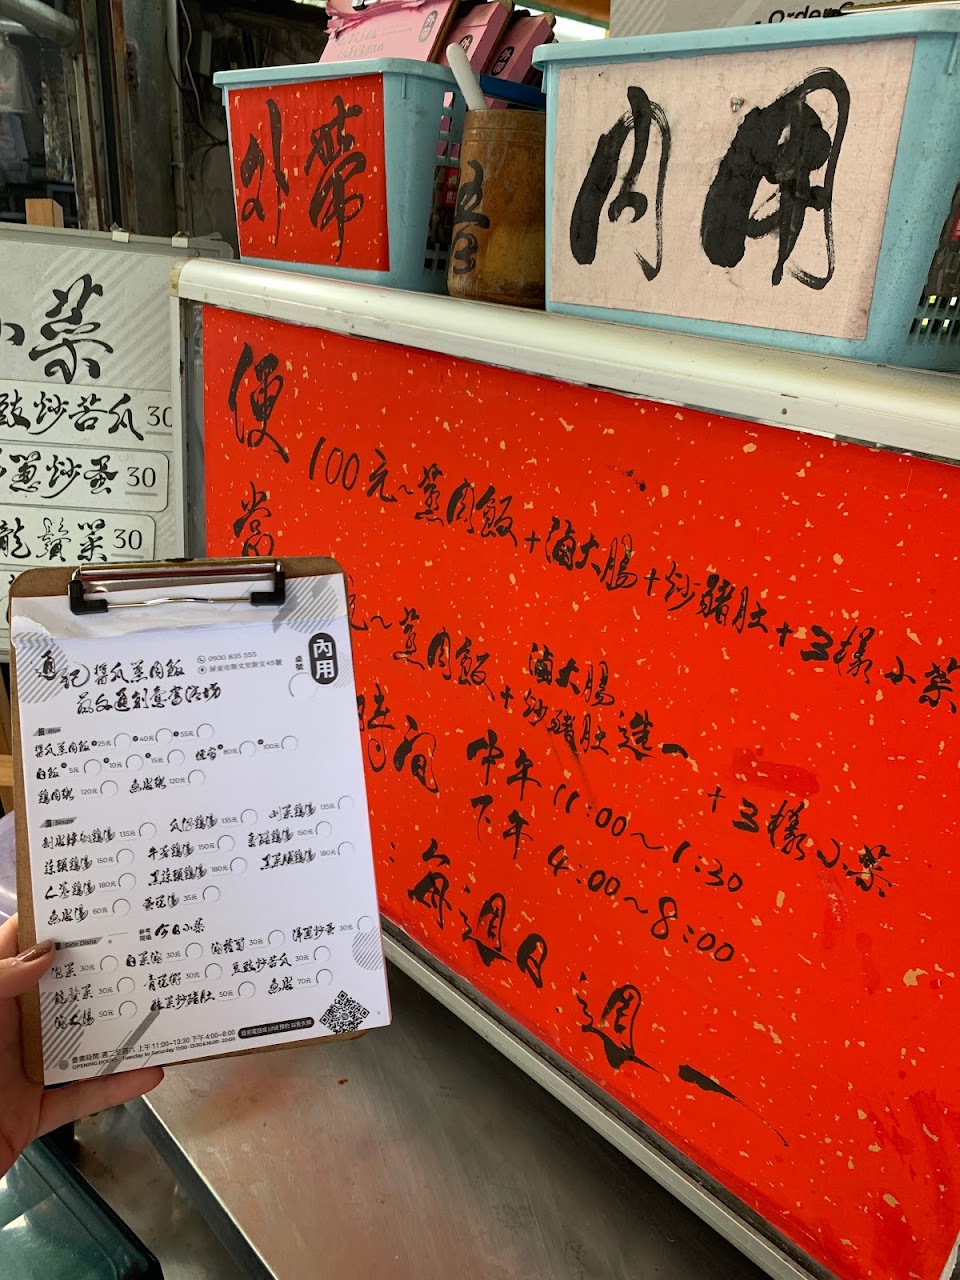 外帶
內用
五
內用
Order
小菜
豉炒苦瓜 30
蔥炒蛋 30
龍鬚菜 30
便當
100元~蒸肉飯+滷大腸+炒豬肚+3樣小菜
元~蒸肉飯+滷大腸 炒豬肚 選一+3樣小菜
時間 中午 11:00~1:30
下午 4:00~8:00
每週日、週一
通記醬瓜蒸肉飯
0930 835 555
屏東市勝文里勝文45號
內用
桌號
飯 Rice
醬瓜蒸肉飯 小25元 中40元 大55元
白飯 小5元 中10元 大15元 便當 80元 100元
雞肉粥 120元 魚肚粥 120元
湯 Soups
135元 瓜仔雞湯 135元 剝菜雞湯 135元
蒜頭雞湯 150元 牛蒡雞湯 150元 香菇雞湯 150元
仁蔘雞湯 180元 黑蒜頭雞湯 180元 黑菜脯雞湯 180元
魚肚湯 60元 35元
Side Dishs
參考現場 今日小菜
泡菜 30元 白菜滷 30元 30元 洋蔥炒蛋 30元
龍鬚菜 30元 30元 豆豉炒苦瓜 30元
滷大腸 50元 酸菜炒豬肚 50元 魚肚 70元
提前電話或LINE預約 以免久候
營業時間:週二至週六 上午11:00~13:30 下午4:00~8:00
OPENING HOURS : Tuesday to Saturday 11:00-13:30 & 16:00-20:00